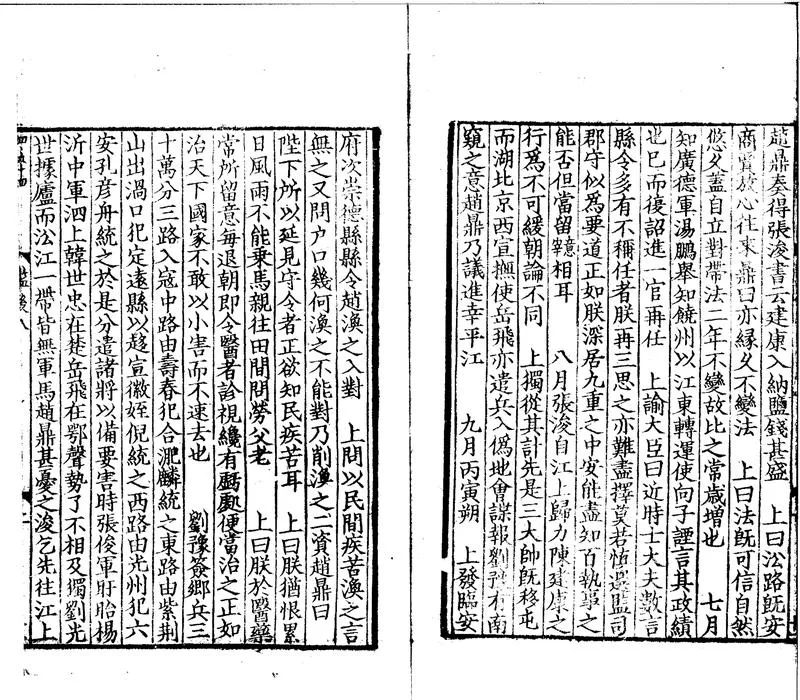 趙鼎奏得張浚書云建康入納鹽錢甚盛　上曰沿路旣安
商賈放心往來鼎曰亦緣久不變法　上曰法旣可信自然
悠久蓋自立對帶法二年不變故比之常歲增也　七月
知廣德軍湯鵬舉知饒州以江東轉運使向子諲言其政績
也已而復詔進一官再任　上諭大臣曰近時士大夫數言
縣令多有不稱任者朕再三思之亦難盡擇莫若慎選監司
郡守似爲要道正如朕深居九重之中安能盡知百執事之
能否但當留意輔相耳　八月張浚自江上歸力陳建康之
行爲不可緩朝論不同　上獨從其計先是三大帥旣移屯
而湖北京西宣撫使岳飛亦遣兵入僞地會諜報劉豫有南
窺之意趙鼎乃議進幸平江　九月丙寅朔　上發臨安
府次崇德縣縣令趙渙之入對　上問以民間疾苦渙之言
無之又問户口幾何渙之不能對乃削渙之二資趙鼎曰
陛下所以延見守令者正欲知民疾苦耳　上曰朕猶恨累
日風雨不能乗馬親往田間問勞父老　上曰朕於醫藥
嘗所留意每退朝即令醫者診視纔有便當治之正如
治天下國家不敢以小害而不速去也　劉豫簽鄉兵三
十萬分三路入寇中路由壽春犯合淝麟統之東路由紫荆
山出渦口犯定遠縣以趍宣徽姪猊統之西路由光州犯六
安孔彦舟統之於是分遣諸將以備要害時張俊軍盱眙楊
沂中軍泗上韓世忠在楚岳飛在鄂聲勢了不相及獨劉光
世據廬而沿江一帶皆無軍馬趙鼎甚憂之浚乞先往江上